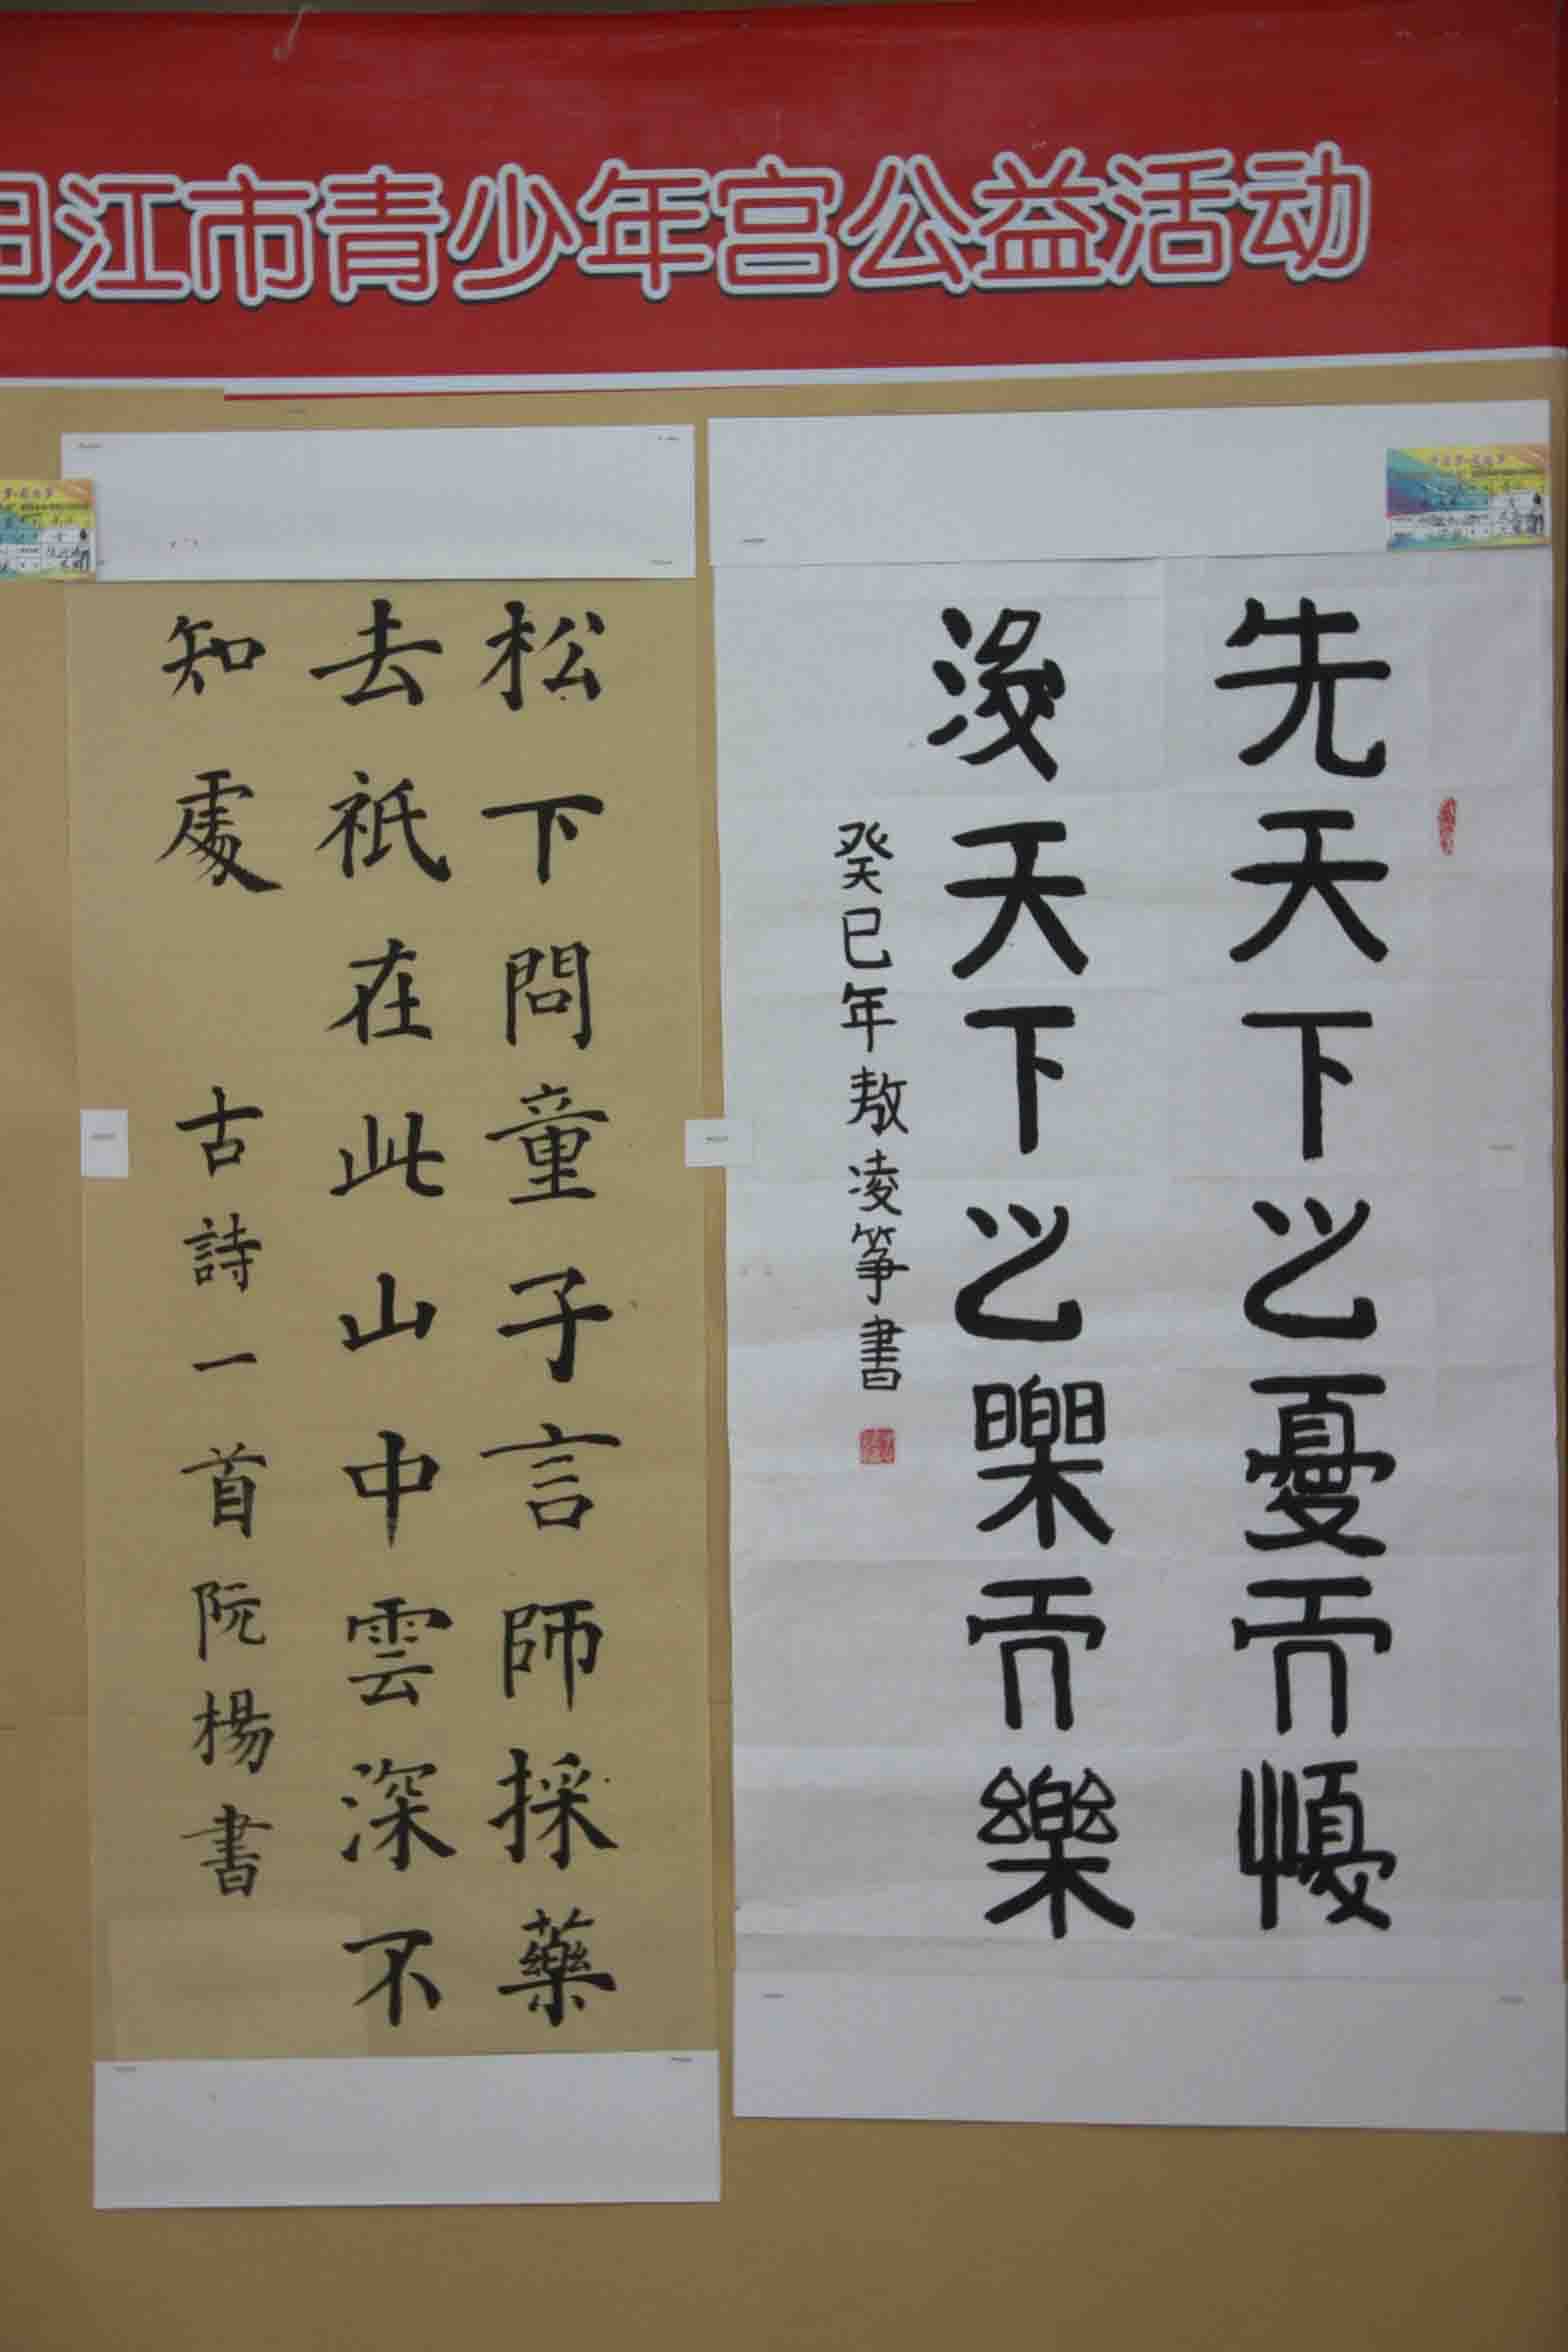 江市青少年宫公益活动
先天下之憂而憂
後天下之樂而樂
癸巳年敖凌箏書
松下問童子言師採藥
去祇在此山中雲深不
知處 古詩一首阮楊書